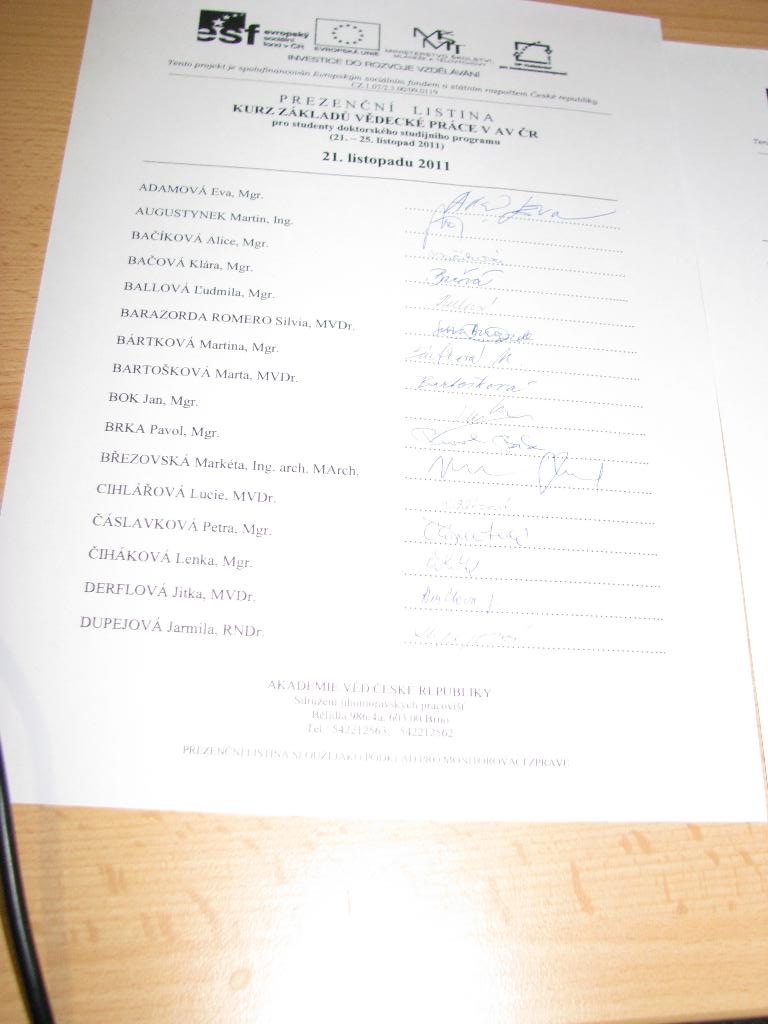 esf evropský sociální fond v ČR EVROPSKÁ UNIE MINISTERSTVO ŠKOLSTVÍ, MLÁDEŽE A TĚLOVÝCHOVY
INVESTICE DO ROZVOJE VZDĚLÁVÁNÍ
Tento projekt je spolufinancován Evropským sociálním fondem a státním rozpočtem České republiky
CZ.1.07/2.3.00/09.0119
PREZENČNÍ LISTINA
KURZ ZÁKLADŮ VĚDECKÉ PRÁCE V AV ČR
pro studenty doktorského studijního programu
(21. – 25. listopad 2011)
21. listopadu 2011
ADAMOVÁ Eva, Mgr.
AUGUSTYNEK Martin, Ing.
BAČÍKOVÁ Alice, Mgr.
BAČOVÁ Klára, Mgr. Bačová
BALLOVÁ Ľudmila, Mgr. Ballová
BARAZORDA ROMERO Silvia, MVDr.
BÁRTKOVÁ Martina, Mgr. Bártková M.
BARTOŠKOVÁ Marta, MVDr. Bartošková
BOK Jan, Mgr.
BRKA Pavol, Mgr.
BŘEZOVSKÁ Markéta, Ing. arch. MArch.
CIHLÁŘOVÁ Lucie, MVDr.
ČÁSLAVKOVÁ Petra, Mgr.
ČIHÁKOVÁ Lenka, Mgr.
DERFLOVÁ Jitka, MVDr.
DUPEJOVÁ Jarmila, RNDr.
AKADEMIE VĚD ČESKÉ REPUBLIKY
Sdružení jihomoravských pracovišť
Bělidla 986/4a, 603 00 Brno
Tel.: 542212563, 542212562
PREZENČNÍ LISTINA SLOUŽÍ JAKO PODKLAD PRO MONITOROVACÍ ZPRÁVU